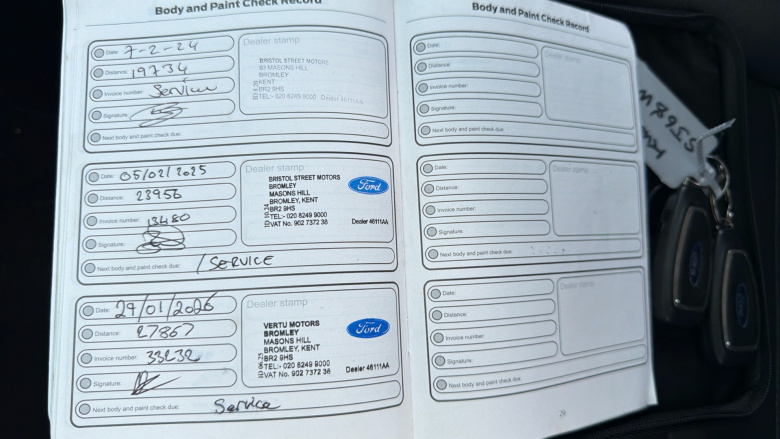 Body and Paint Check Record
Date: 7-2-24
Distance: 19734
Invoice number: Service
Signature:
Next body and paint check due:
Dealer stamp
BRISTOL STREET MOTORS
83 MASONS HILL
BROMLEY
KENT
BR2 9HS
TEL:- 020 8249 9000 Dealer 46111AA
Date: 05/02/2025
Distance: 23956
Invoice number: 13480
Signature:
Next body and paint check due: / SERVICE
Dealer stamp
BRISTOL STREET MOTORS
BROMLEY
MASONS HILL
BROMLEY, KENT
BR2 9HS
TEL:- 020 8249 9000
VAT No. 902 7372 38 Dealer 46111AA
Ford
Date: 29/01/2026
Distance: 27867
Invoice number: 33232
Signature:
Next body and paint check due: Service
Dealer stamp
VERTU MOTORS
BROMLEY
MASONS HILL
BROMLEY, KENT
BR2 9HS
TEL:- 020 8249 9000
VAT No. 902 7372 38 Dealer 46111AA
Ford
Body and Paint Check Record
Date:
Distance:
Invoice number:
Signature:
Next body and paint check due:
Dealer stamp
Date:
Distance:
Invoice number:
Signature:
Next body and paint check due:
Dealer stamp
Date:
Distance:
Invoice number:
Signature:
Next body and paint check due:
Dealer stamp
29